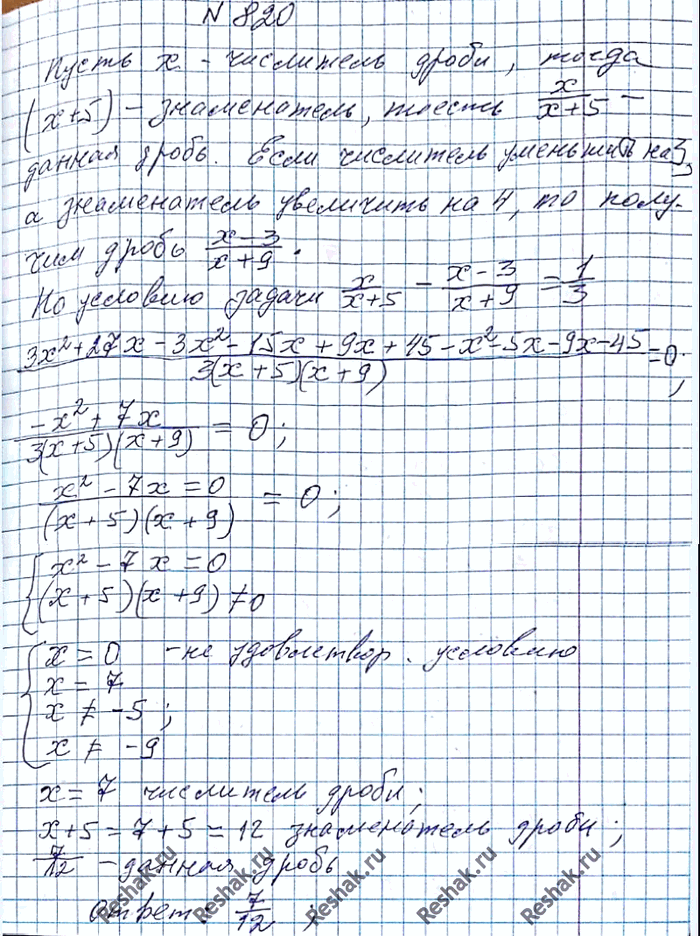 N 820
Пусть x - числитель дроби, тогда
(x+5) - знаменатель, тоесть x/(x+5) -
данная дробь. Если числитель уменьшить на 3,
а знаменатель увеличить на 4, то полу-
чим дробь (x-3)/(x+9).
По условию задачи x/(x+5) - (x-3)/(x+9) = 1/3
(3x² + 27x - 3x² - 15x + 9x + 45 - x² - 5x - 9x - 45)/(3(x+5)(x+9)) = 0;
(-x² + 7x)/(3(x+5)(x+9)) = 0;
(x² - 7x = 0)/((x+5)(x+9)) = 0;
{ x² - 7x = 0
(x+5)(x+9) ≠ 0
{ x = 0 - не удовлетвор. условию
x = 7
x ≠ -5;
x ≠ -9
x = 7 числитель дроби;
x+5 = 7+5 = 12 знаменатель дроби;
7/12 - данная дробь
ответ: 7/12;
Reshak.ru Reshak.ru Reshak.ru Reshak.ru